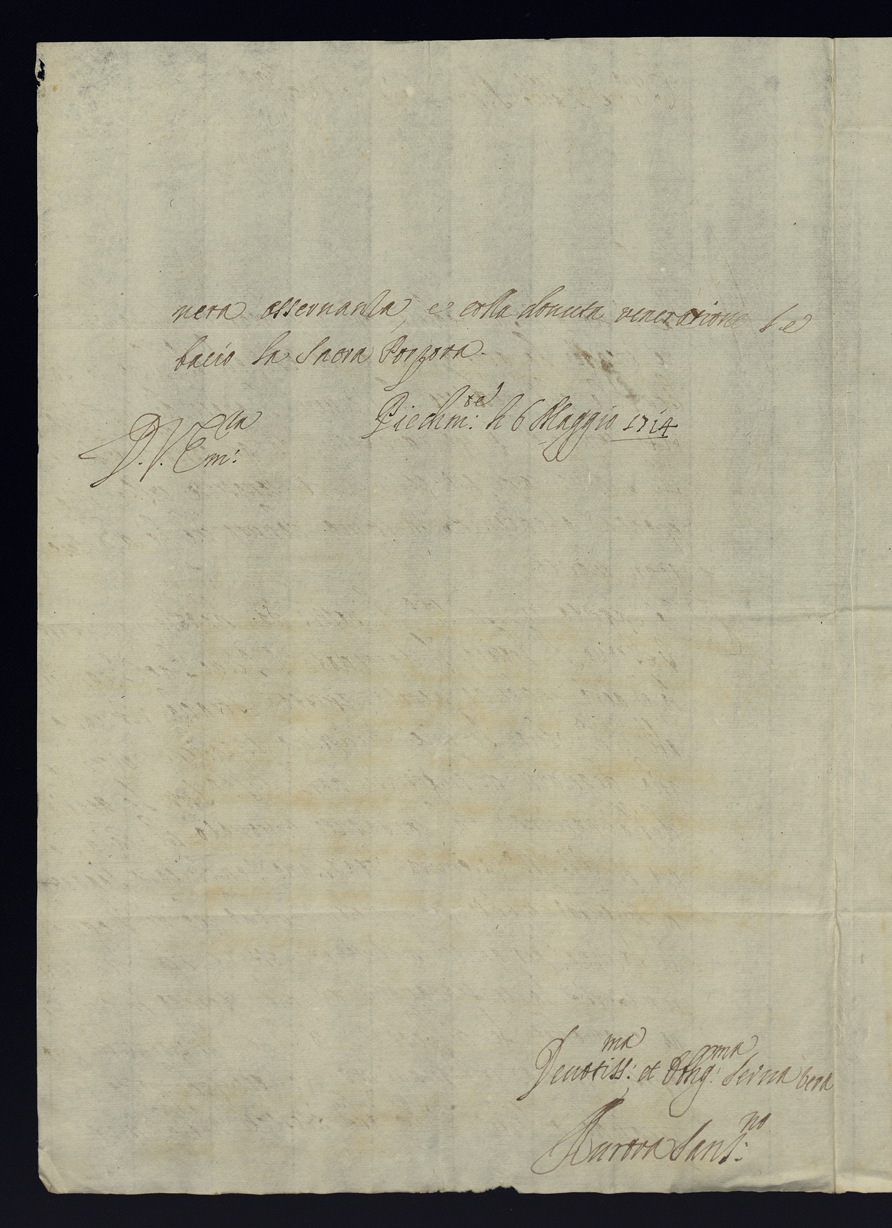 vera osservanza, et colla dovuta veneratione le
bacio la Sacra Porpora.
Piedim:te li 6 Maggio 1714
D. V. Em:za
Devotiss:ma et Oblig:ma Serva vera
Aurora Sans:no